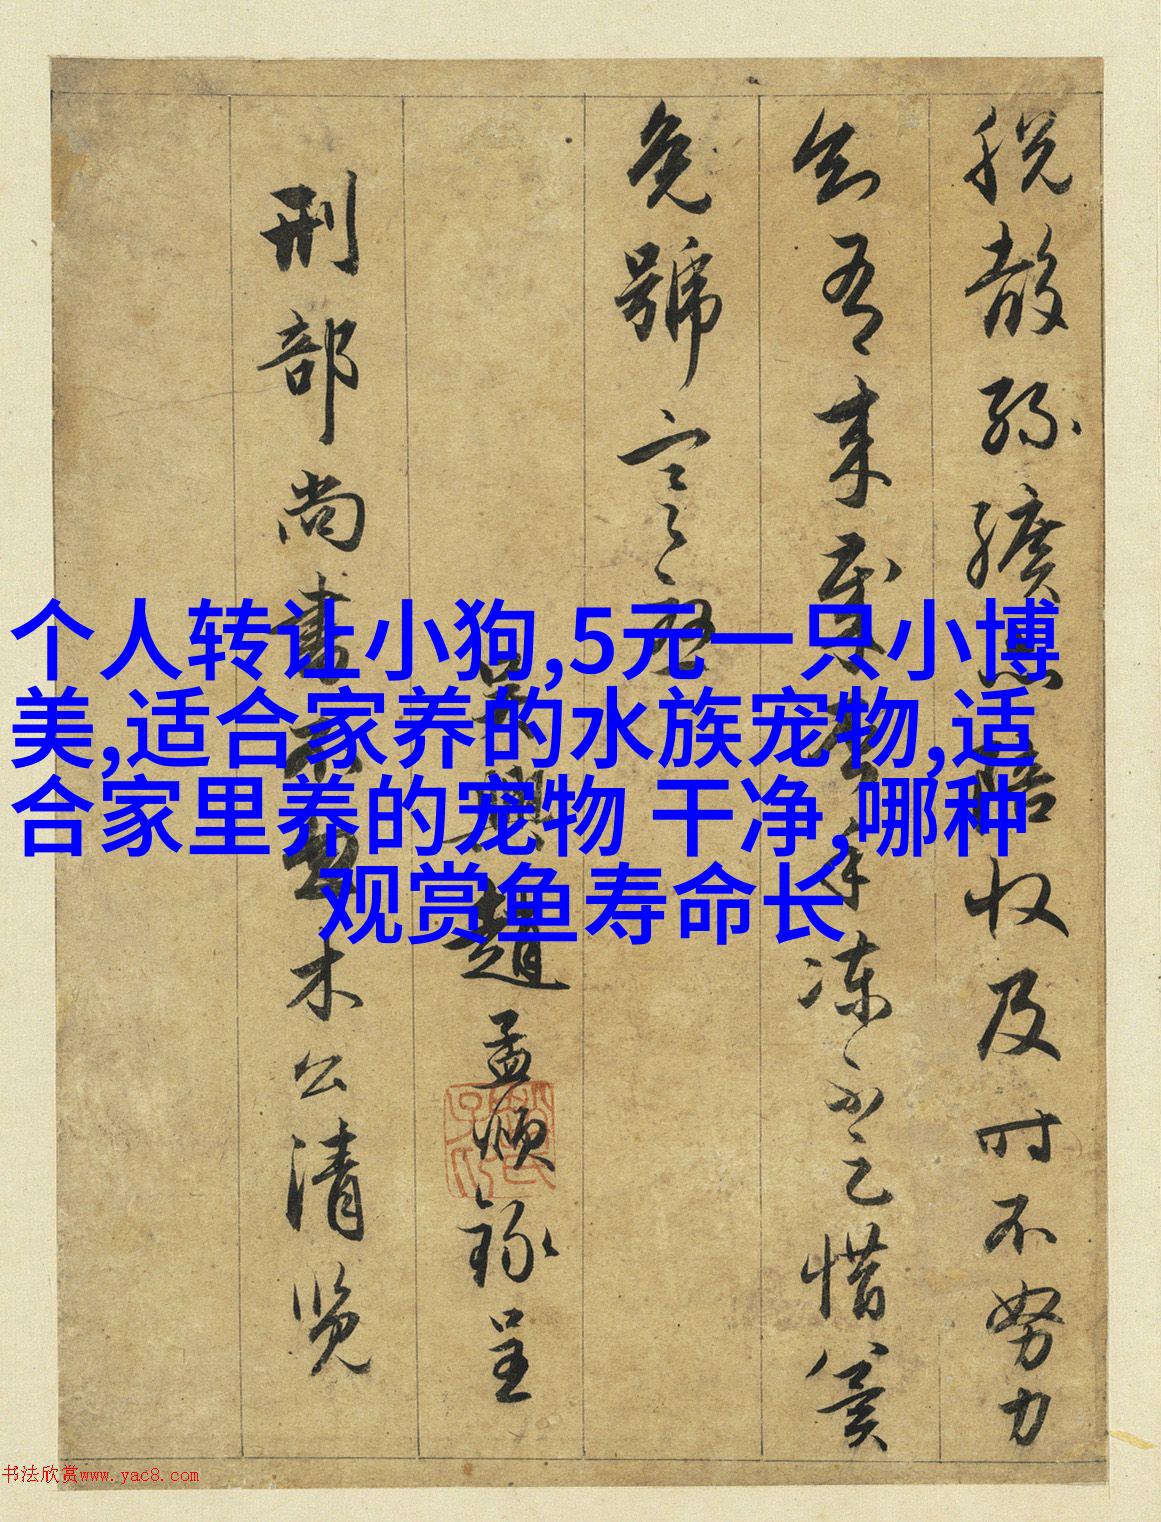 个人转让小狗,5元一只小博
美,适合家养的水族宠物,适
合家里养的宠物 干净,哪种
观赏鱼寿命长
散絲纊 及时不努力
吾来 手凍 之惜
免號寒
吳興趙孟頫錄呈
刑部尚書不忽木公清览
书法欣赏www.yac8.com